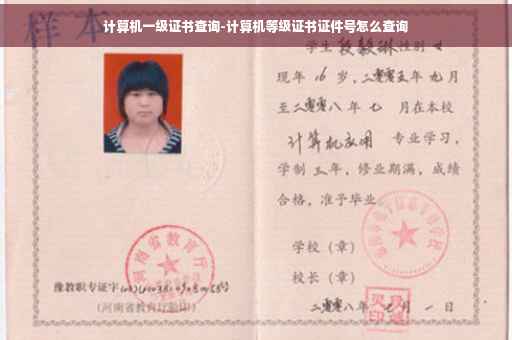 计算机一级证书查询-计算机等级证书证件号怎么查询
样本
学生 段毅琳 性别 女
现年 16 岁，二零零五年 九月
至二零零八年 七 月在本校
计算机应用 专业学习，
学制 三年，修业期满，成绩
合格，准予毕业
学校（章）
校长（章）
二零零八年 七月 一日
河南省教育厅
豫教职专证字
（河南省教育厅验印）